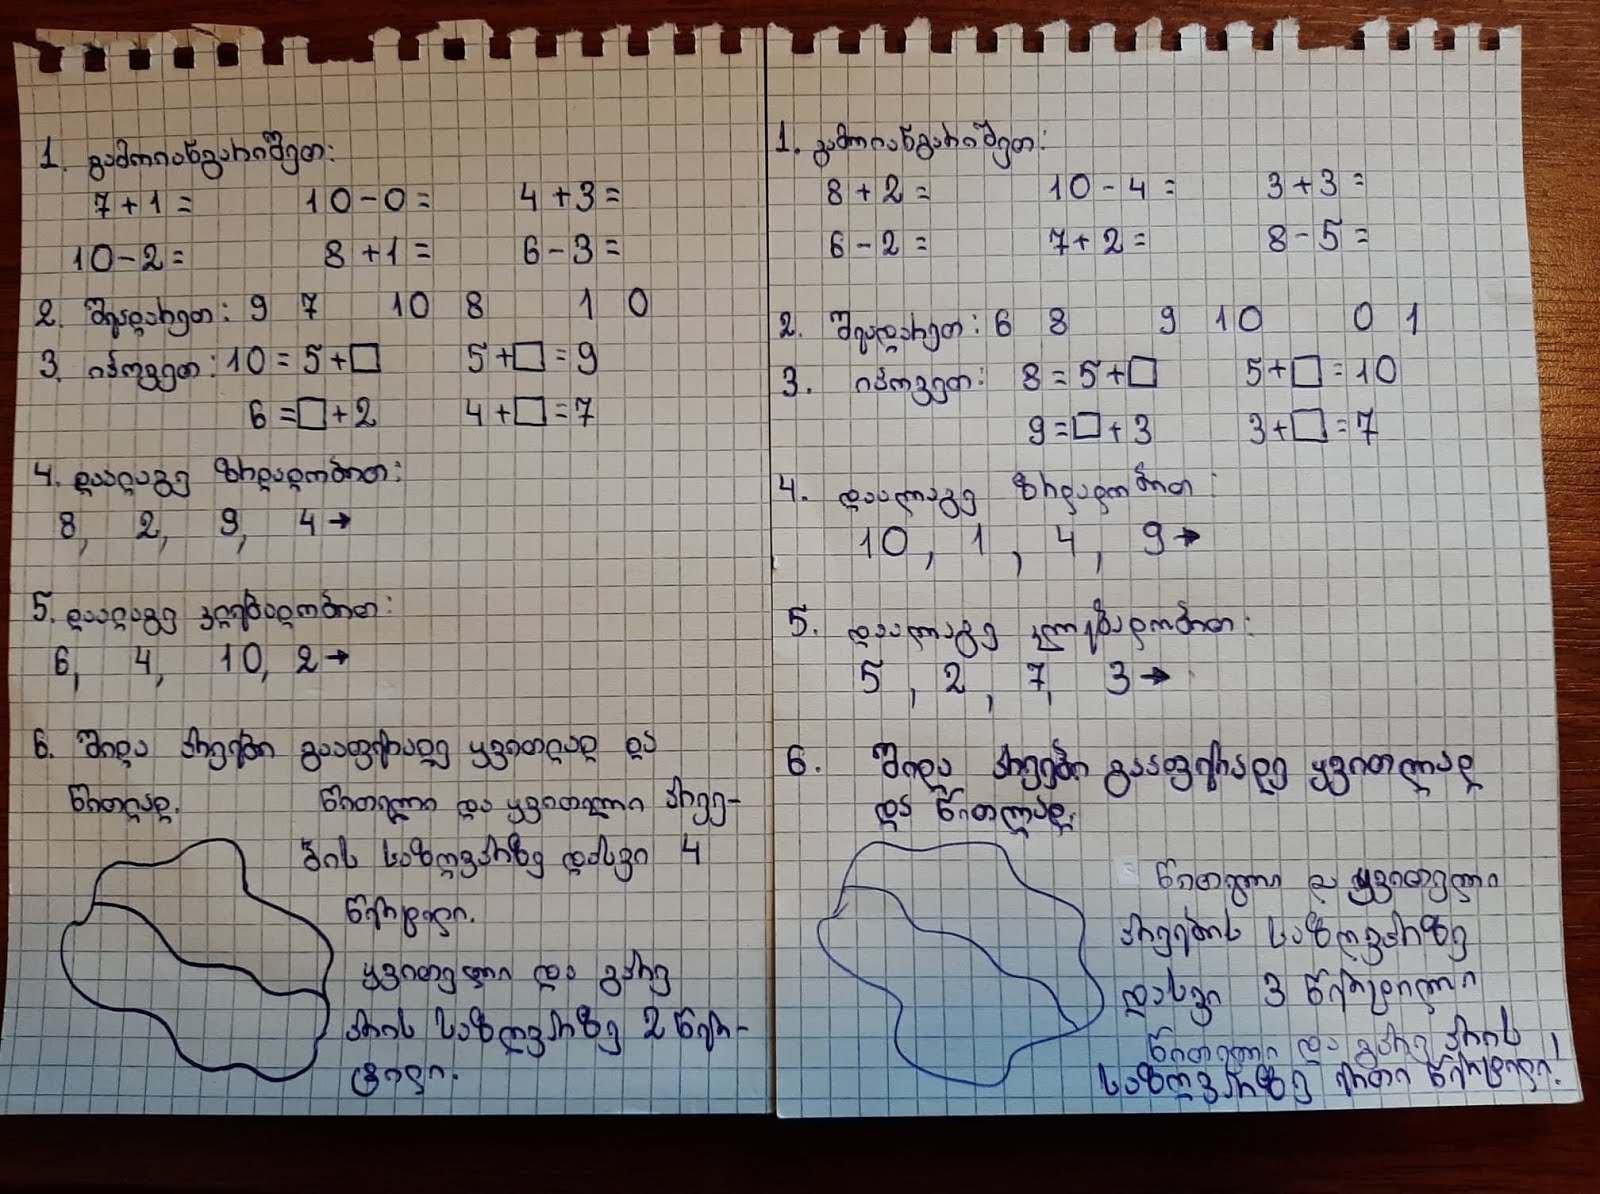 1. გამოიანგარიშეთ:
7+1= 10-0= 4+3=
10-2= 8+1= 6-3=
2. შეადარეთ: 9 7 10 8 1 0
3. იპოვეთ: 10=5+□ 5+□=9
6=□+2 4+□=7
4. დაალაგე ზრდადობით:
8, 2, 9, 4→
5. დაალაგე კლებადობით:
6, 4, 10, 2→
6. შიდა არეები გააფერადე ყვითლად და
წითლად. წითელი და ყვითელი არეე-
ბის საზღვარზე დასვი 4
წერტილი.
ყვითელი და გარე
არის საზღვარზე 2 წერ-
ტილი.
1. გამოიანგარიშეთ:
8+2= 10-4= 3+3=
6-2= 7+2= 8-5=
2. შეადარეთ: 6 8 9 10 0 1
3. იპოვეთ: 8=5+□ 5+□=10
9=□+3 3+□=7
4. დაალაგე ზრდადობით:
10, 1, 4, 9→
5. დაალაგე კლებადობით:
5, 2, 7, 3→
6. შიდა არეები გააფერადე ყვითლად
და წითლად.
წითელი და ყვითელი
არეების საზღვარზე
დასვი 3 წერტილი
წითელი და გარე არის
საზღვარზე ერთი წერტილი!